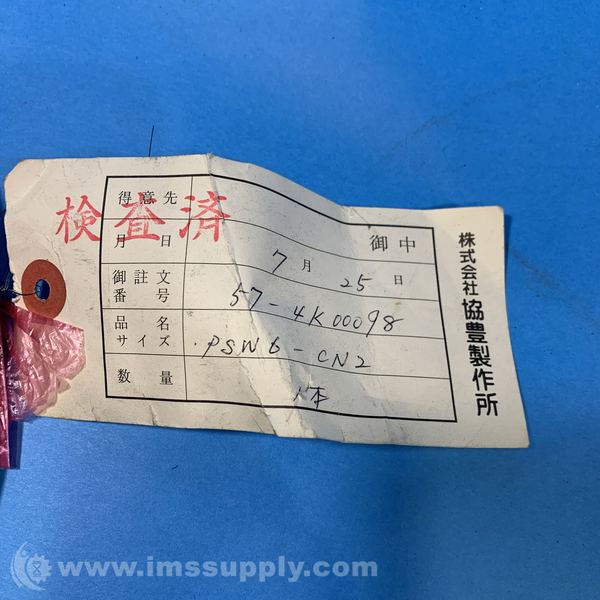 検査済
得意先
御中
月日
7月25日
御註文番号
57-4K00098
品名サイズ
PSW6-CN2
数量
1本
株式会社 協豊製作所
www.imssupply.com